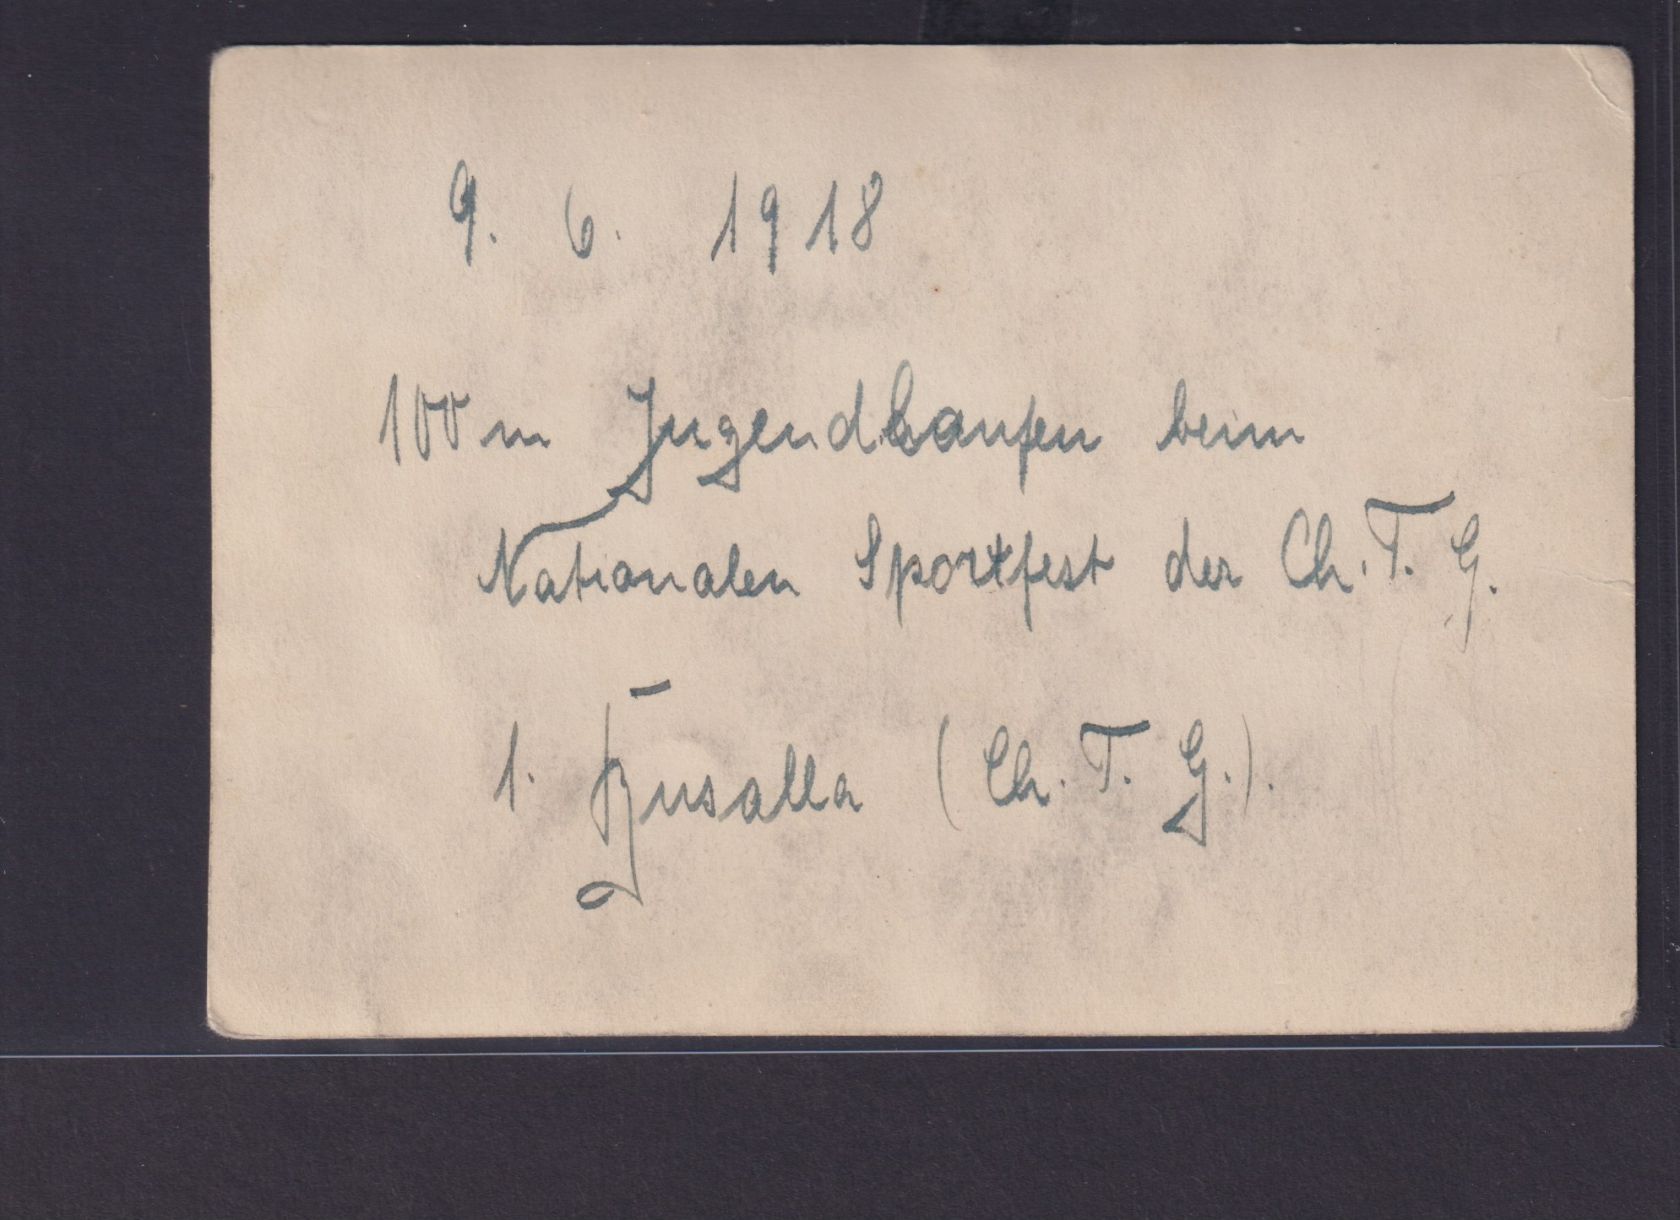 9. 6. 1918
100 m Jugendlaufen beim
Nationalen Sportfest der Ch. T. G.
1. (Ch. T. G.).